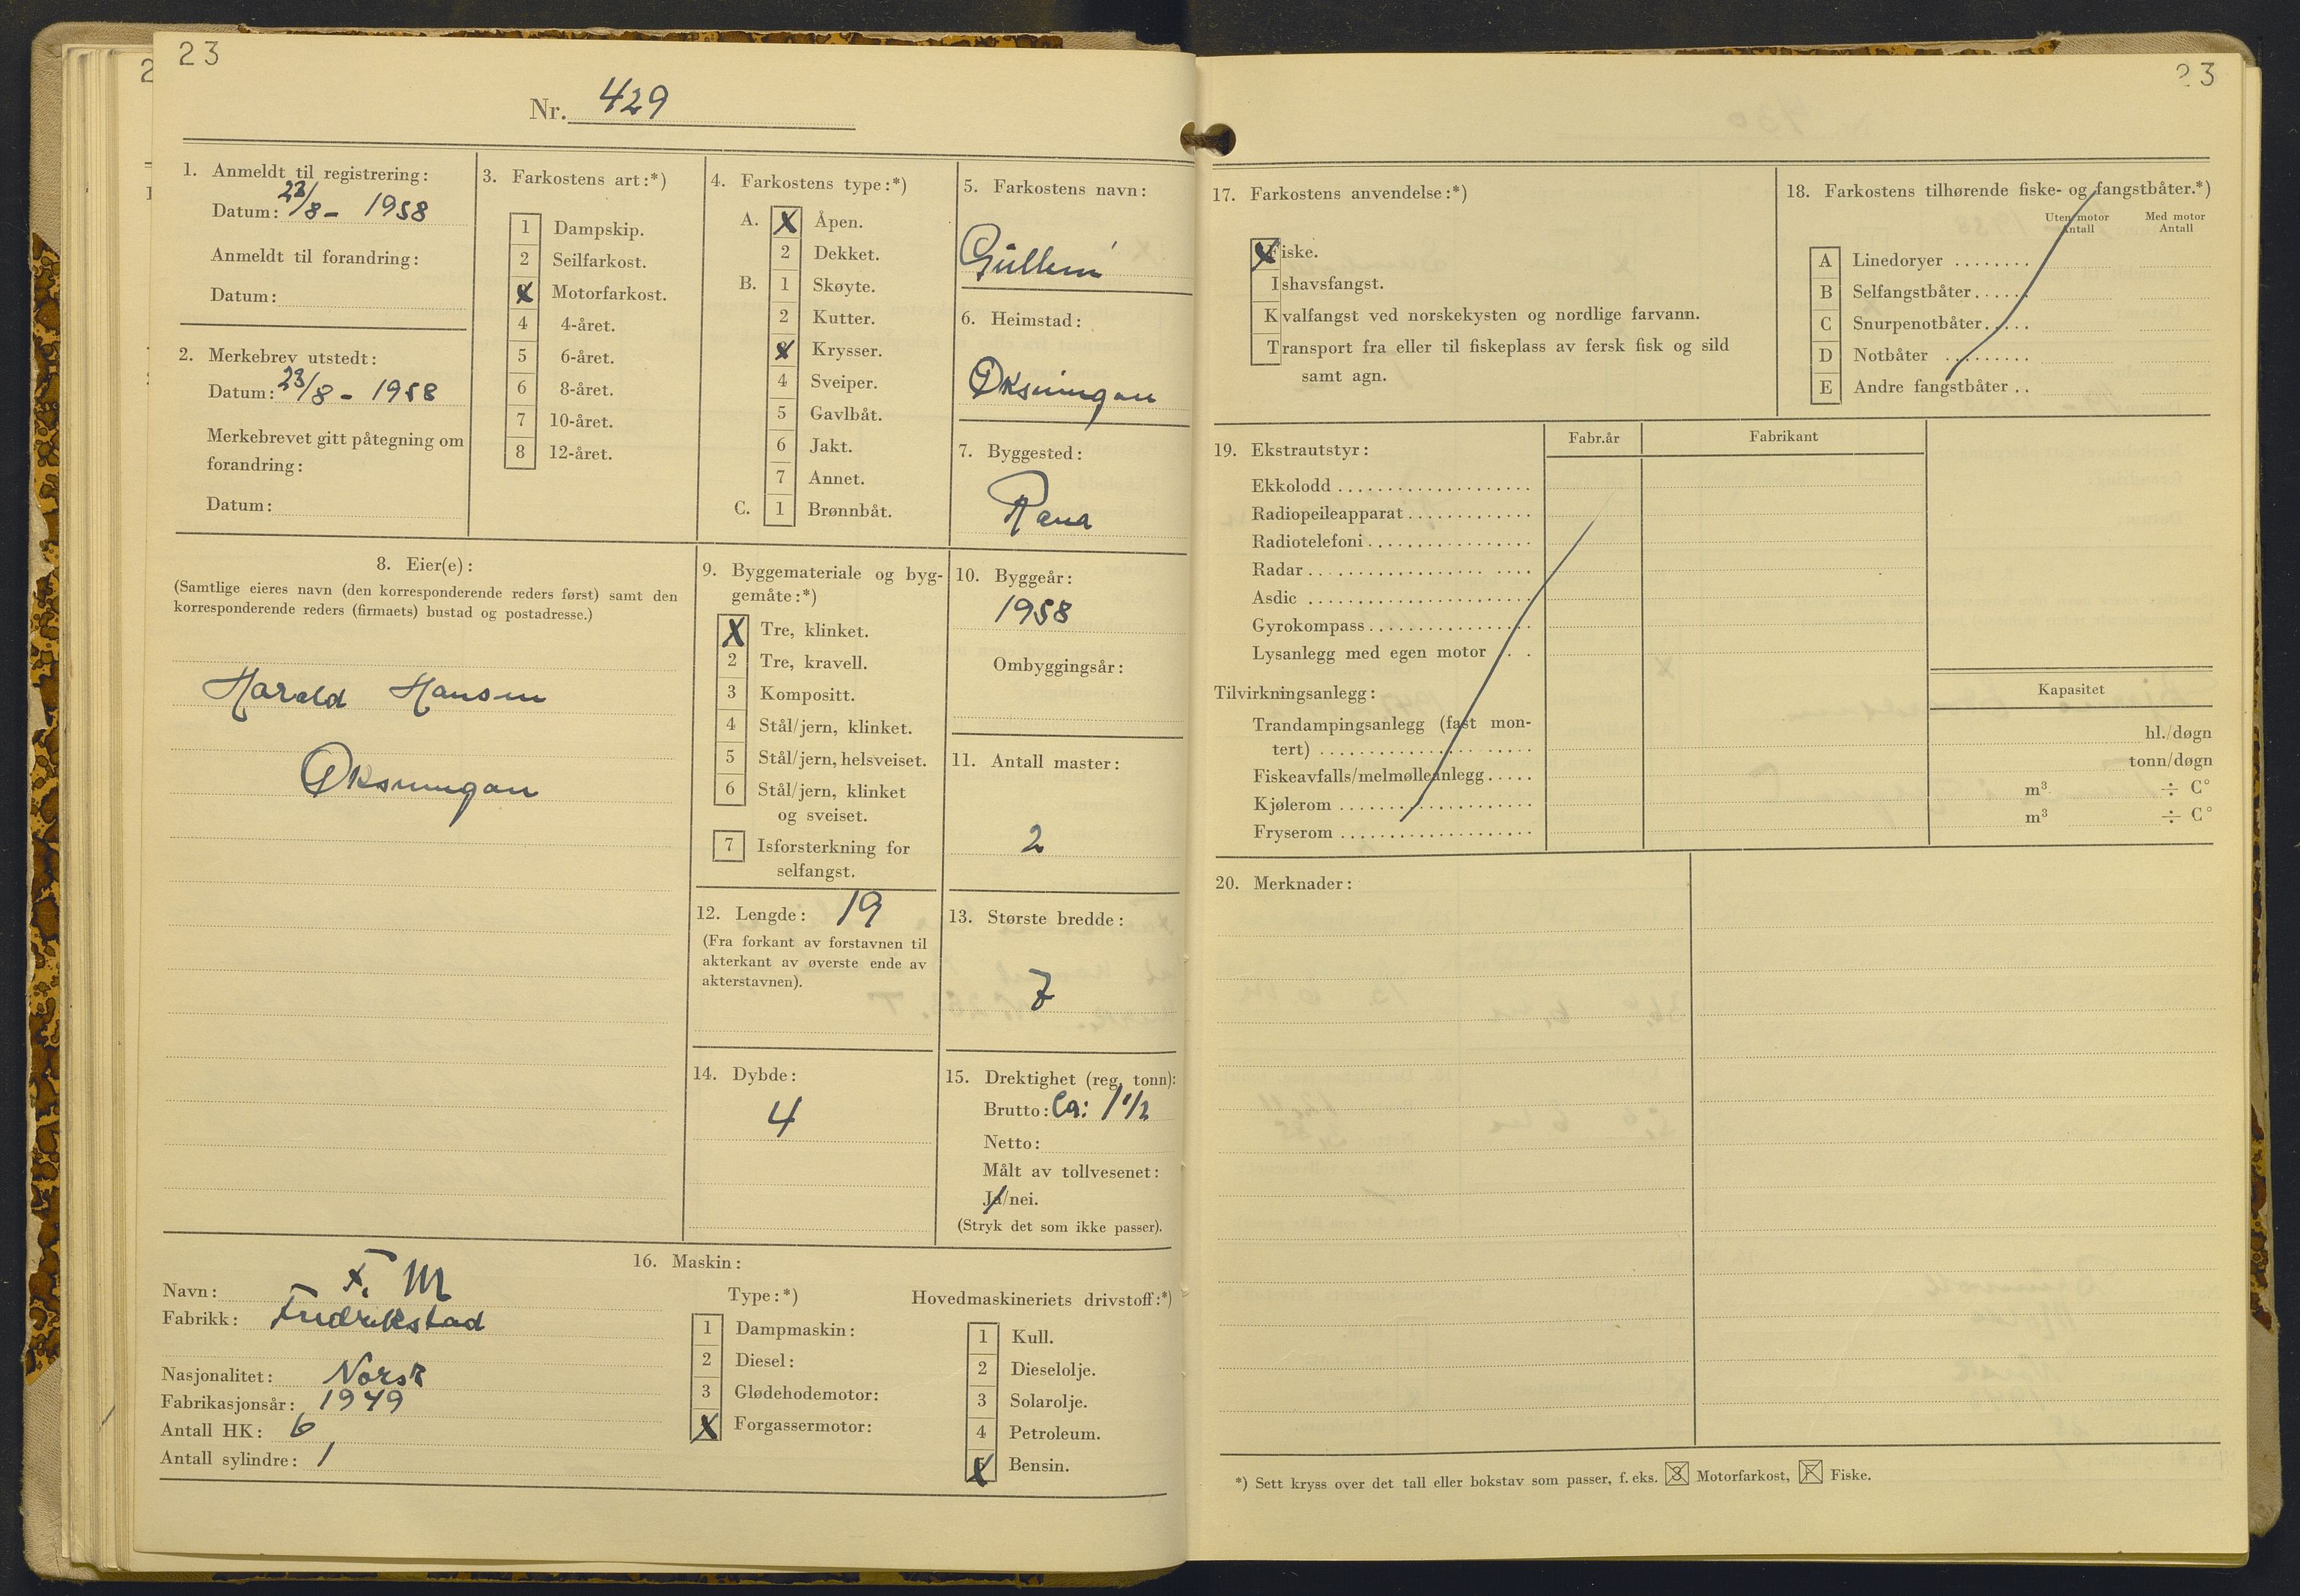 23
Nr. 429
1. Anmeldt til registrering:
Datum: 23/8 - 1958
Anmeldt til forandring:
Datum:
2. Merkebrev utstedt:
Datum: 23/8 - 1958
Merkebrevet gitt påtegning om
forandring:
Datum:
3. Farkostens art:*)
1 Dampskip.
2 Seilfarkost.
X Motorfarkost.
4 4-året.
5 6-året.
6 8-året.
7 10-året.
8 12-året.
4. Farkostens type:*)
A. X Åpen.
2 Dekket.
B. 1 Skøyte.
2 Kutter.
X Krysser.
4 Sveiper.
5 Gavlbåt.
6 Jakt.
7 Annet.
C. 1 Brønnbåt.
5. Farkostens navn:
6. Heimstad:
Øksningan
7. Byggested:
Rana
8. Eier(e):
(Samtlige eieres navn (den korresponderende reders først) samt den
korresponderende reders (firmaets) bustad og postadresse.)
Harald Hansen
Øksningan
9. Byggemateriale og byg-
gemåte:*)
X Tre, klinket.
2 Tre, kravell.
3 Kompositt.
4 Stål/jern, klinket.
5 Stål/jern, helsveiset.
6 Stål/jern, klinket
og sveiset.
7 Isforsterkning for
selfangst.
10. Byggeår:
1958
Ombyggingsår:
11. Antall master:
2
12. Lengde: 19
(Fra forkant av forstavnen til
akterkant av øverste ende av
akterstavnen).
13. Største bredde:
7
14. Dybde:
4
15. Drektighet (reg. tonn):
Brutto: Ca: 1 1/2
Netto:
Målt av tollvesenet:
Ja/nei.
(Stryk det som ikke passer).
16. Maskin:
Navn: F. M
Fabrikk: Fredrikstad
Nasjonalitet: Norsk
Fabrikasjonsår: 1949
Antall HK: 6
Antall sylindre: 1
Type:*)
1 Dampmaskin:
2 Diesel:
3 Glødehodemotor:
X Forgassermotor:
Hovedmaskineriets drivstoff:*)
1 Kull.
2 Dieselolje.
3 Solarolje.
4 Petroleum.
X Bensin.
23
17. Farkostens anvendelse:*)
Fiske.
Ishavsfangst.
Kvalfangst ved norskekysten og nordlige farvann.
Transport fra eller til fiskeplass av fersk fisk og sild
samt agn.
18. Farkostens tilhørende fiske- og fangstbåter.*)
Uten motor Med motor
Antall Antall
A Linedoryer ........
B Selfangstbåter......
C Snurpenotbåter.....
D Notbåter .........
E Andre fangstbåter ..
19. Ekstrautstyr:
Fabr.år Fabrikant
Ekkolodd ...................
Radiopeileapparat.............
Radiotelefoni.................
Radar........................
Asdic ........................
Gyrokompass.................
Lysanlegg med egen motor ...
Tilvirkningsanlegg:
Kapasitet
Trandampingsanlegg (fast mon-
tert) ........................ hl./døgn
Fiskeavfalls/melmølleanlegg..... tonn/døgn
Kjølerom .................... m³ ÷ C°
Fryserom .................... m³ ÷ C°
20. Merknader:
*) Sett kryss over det tall eller bokstav som passer, f. eks. 3 Motorfarkost, F Fiske.